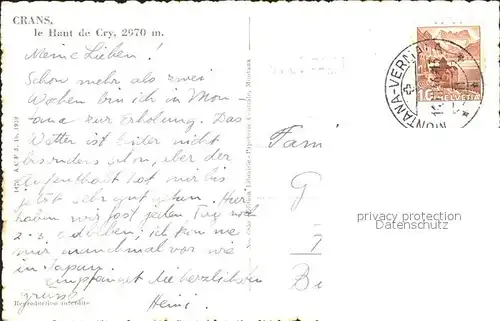 CRANS,
le Haut de Cry, 2970 m.
Meine Lieben!
Schon mehr als zwei
Wochen bin ich in Mon-
tana zur Erholung. Das
Wetter ist leider nicht
besonders schön, aber der
Aufenthalt hat mir bis
jetzt sehr gut getan. Hier
haben wir fast jeden Tag noch
2-3 ; ich kom me
mir manchmal vor wie
in Japan.
Empfanget die herzlichsten
grüsse Heini.
Reproduction interdite
MONTANA-VERMALA
10
HELVETIA
Fam
G
Privacy protection watermark
Datenschutz
B